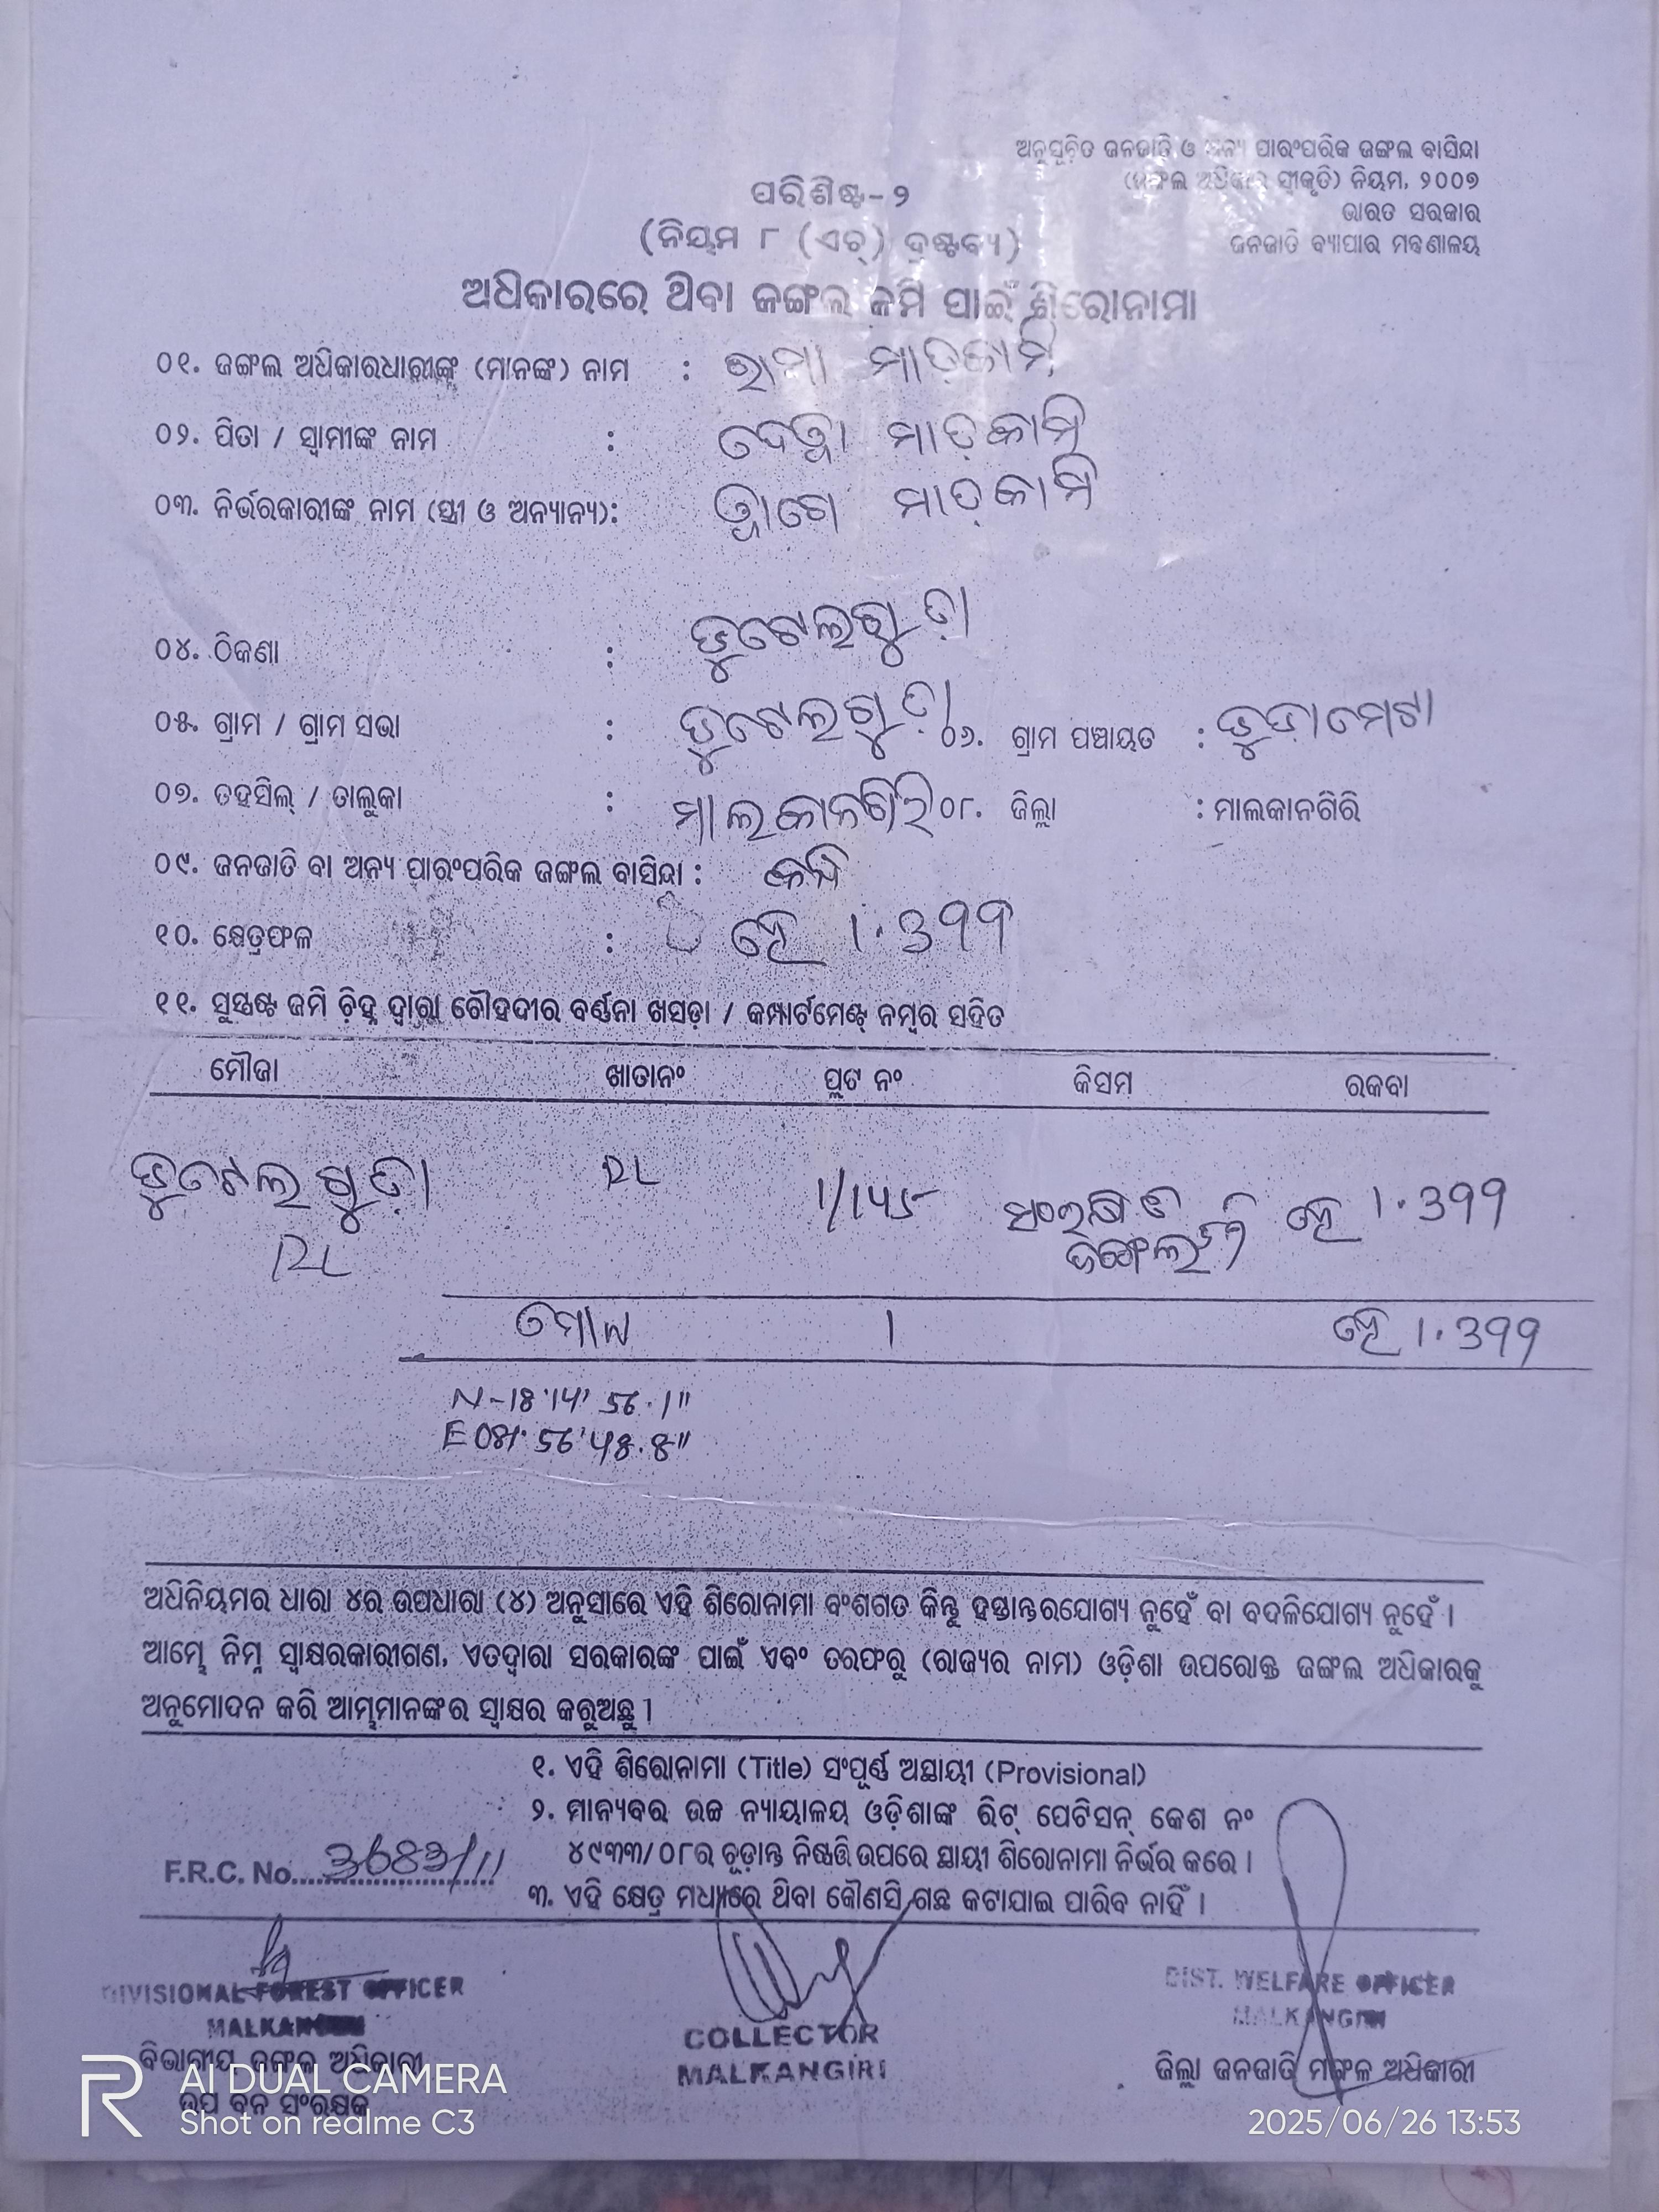 ଅନୁସୂଚିତ ଜନଜାତି ଓ ଅନ୍ୟ ପାରଂପରିକ ଜଙ୍ଗଲ ବାସିନ୍ଦା
(ଜଙ୍ଗଲ ଅଧିକାର ସ୍ୱୀକୃତି) ନିୟମ, ୨୦୦୭
ଭାରତ ସରକାର
ଜନଜାତି ବ୍ୟାପାର ମନ୍ତ୍ରଣାଳୟ
ପରିଶିଷ୍ଟ-୨
(ନିୟମ ୮ (ଏଚ୍) ଦ୍ରଷ୍ଟବ୍ୟ)
ଅଧିକାରରେ ଥିବା ଜଙ୍ଗଲ ଜମି ପାଇଁ ଶିରୋନାମା
୦୧. ଜଙ୍ଗଲ ଅଧିକାରଧାରୀଙ୍କ (ମାନଙ୍କ) ନାମ : ରାମା ମାଡ଼କାମି
୦୨. ପିତା / ସ୍ୱାମୀଙ୍କ ନାମ : ଦେବା ମାଡ଼କାମି
୦୩. ନିର୍ଭରକାରୀଙ୍କ ନାମ (ସ୍ତ୍ରୀ ଓ ଅନ୍ୟାନ୍ୟ): ମାଡ଼କାମି
୦୪. ଠିକଣା : ଭୁଟେଲଗୁଡ଼ା
୦୫. ଗ୍ରାମ / ଗ୍ରାମ ସଭା : ଭୁଟେଲଗୁଡ଼ା ୦୬. ଗ୍ରାମ ପଞ୍ଚାୟତ :
୦୭. ତହସିଲ୍ / ତାଲୁକା : ମାଲକାନଗିରି ୦୮. ଜିଲ୍ଲା : ମାଲକାନଗିରି
୦୯. ଜନଜାତି ବା ଅନ୍ୟ ପାରଂପରିକ ଜଙ୍ଗଲ ବାସିନ୍ଦା :
୧୦. କ୍ଷେତ୍ରଫଳ : ହେ ୧.୩୭୭
୧୧. ସୁସ୍ପଷ୍ଟ ଜମି ଚିହ୍ନ ଦ୍ୱାରା ଚୌହଦୀର ବର୍ଣ୍ଣନା ଖସଡ଼ା / କମ୍ପାର୍ଟମେଣ୍ଟ୍ ନମ୍ବର ସହିତ
ମୌଜା ଖାତାନଂ ପ୍ଲଟ ନଂ କିସମ ରକବା
ଭୁଟେଲଗୁଡ଼ା RL ସଂରକ୍ଷିତ ହେ ୧.୩୭୭
RL ଜଙ୍ଗଲ
ମୋଟ ୧ ହେ ୧.୩୭୭
ଅଧିନିୟମର ଧାରା ୪ର ଉପଧାରା (୪) ଅନୁସାରେ ଏହି ଶିରୋନାମା ବଂଶଗତ କିନ୍ତୁ ହସ୍ତାନ୍ତରଯୋଗ୍ୟ ନୁହେଁ ବା ବଦଳିଯୋଗ୍ୟ ନୁହେଁ ।
ଆମ୍ଭେ ନିମ୍ନ ସ୍ୱାକ୍ଷରକାରୀଗଣ, ଏତଦ୍ୱାରା ସରକାରଙ୍କ ପାଇଁ ଏବଂ ତରଫରୁ (ରାଜ୍ୟର ନାମ) ଓଡ଼ିଶା ଉପରୋକ୍ତ ଜଙ୍ଗଲ ଅଧିକାରକୁ
ଅନୁମୋଦନ କରି ଆମ୍ଭମାନଙ୍କର ସ୍ୱାକ୍ଷର କରୁଅଛୁ ।
୧. ଏହି ଶିରୋନାମା (Title) ସଂପୂର୍ଣ୍ଣ ଅସ୍ଥାୟୀ (Provisional)
୨. ମାନ୍ୟବର ଉଚ୍ଚ ନ୍ୟାୟାଳୟ ଓଡ଼ିଶାଙ୍କ ରିଟ୍ ପେଟିସନ୍ କେଶ ନଂ
୪୯୩୩/୦୮ର ଚୂଡ଼ାନ୍ତ ନିଷ୍ପତ୍ତି ଉପରେ ସ୍ଥାୟୀ ଶିରୋନାମା ନିର୍ଭର କରେ ।
F.R.C. No. 3683/11
୩. ଏହି କ୍ଷେତ୍ର ମଧ୍ୟରେ ଥିବା କୌଣସି ଗଛ କଟାଯାଇ ପାରିବ ନାହିଁ ।
DIVISIONAL FOREST OFFICER
MALKANGIRI
ବିଭାଗୀୟ ଜଙ୍ଗଲ ଅଧିକାରୀ
ଉପ ବନ ସଂରକ୍ଷକ
COLLECTOR
MALKANGIRI
DIST. WELFARE OFFICER
MALKANGIRI
ଜିଲ୍ଲା ଜନଜାତି ମଙ୍ଗଳ ଅଧିକାରୀ
AI DUAL CAMERA
Shot on realme C3
2025/06/26 13:53